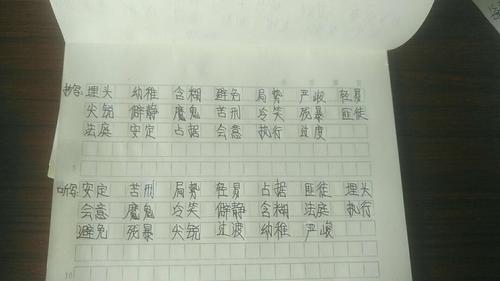 抄写:埋头 幼稚 含糊 避免 局势 严峻 轻易
尖锐 僻静 魔鬼 苦刑 冷笑 残暴 匪徒
法庭 安定 占据 会意 执行 过度
听写:安定 苦刑 局势 轻易 占据 匪徒 埋头
会意 魔鬼 冷笑 僻静 含糊 法庭 执行
避免 残暴 尖锐 过渡 幼稚 严峻